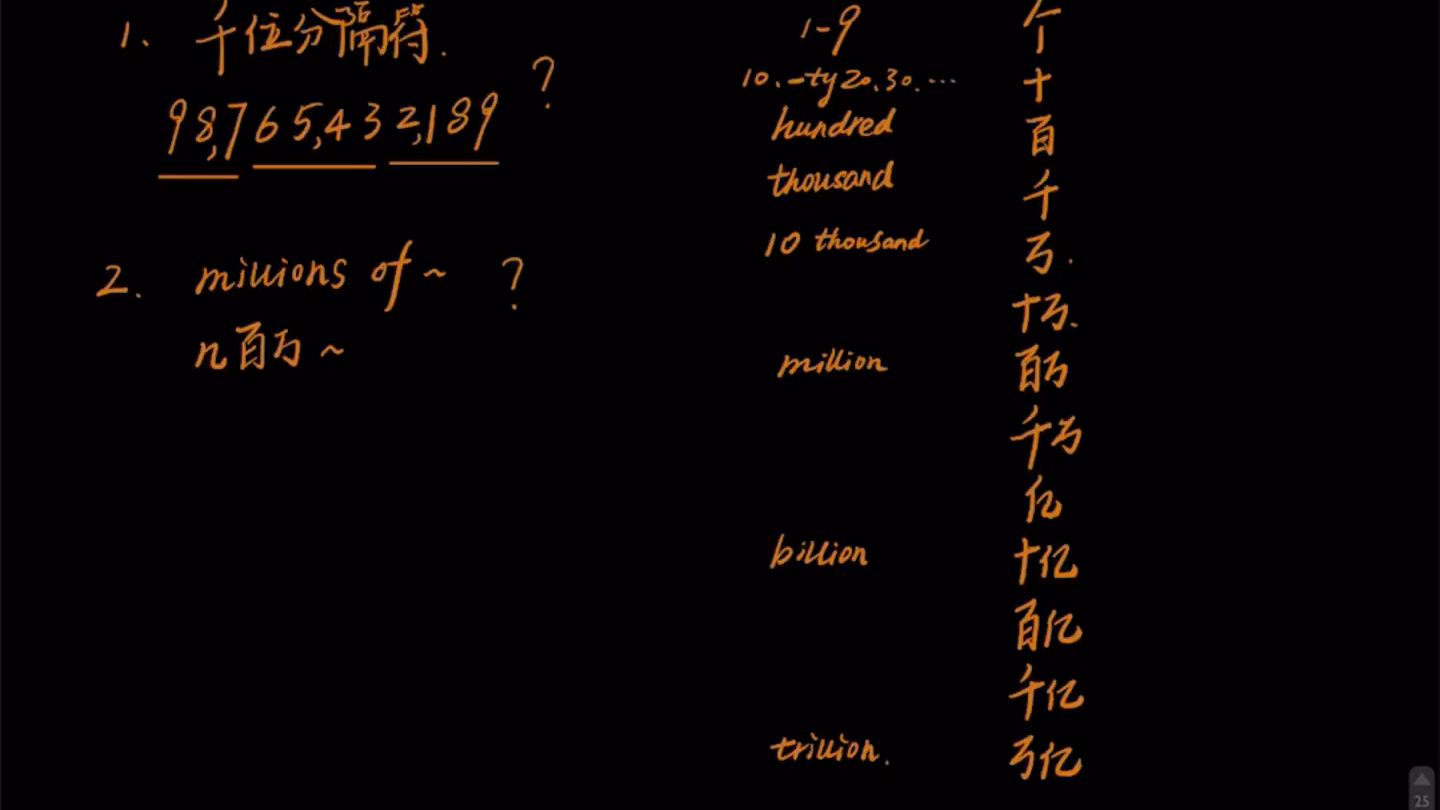 1、千位分隔符.
98,765,432,189 ?
2. millions of ~ ?
n百万 ~
1-9 个
10.-ty20.30.… 十
hundred 百
thousand 千
10 thousand 万.
十万.
million 百万
千万
亿
billion 十亿
百亿
千亿
trillion. 万亿
25